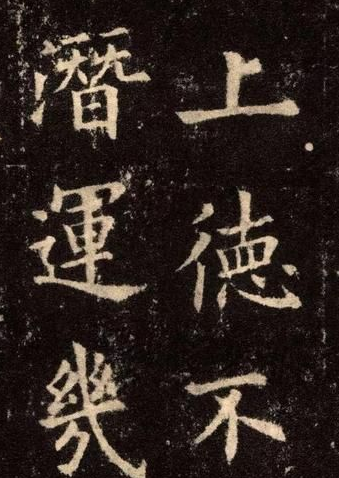 上德不
潛運幾